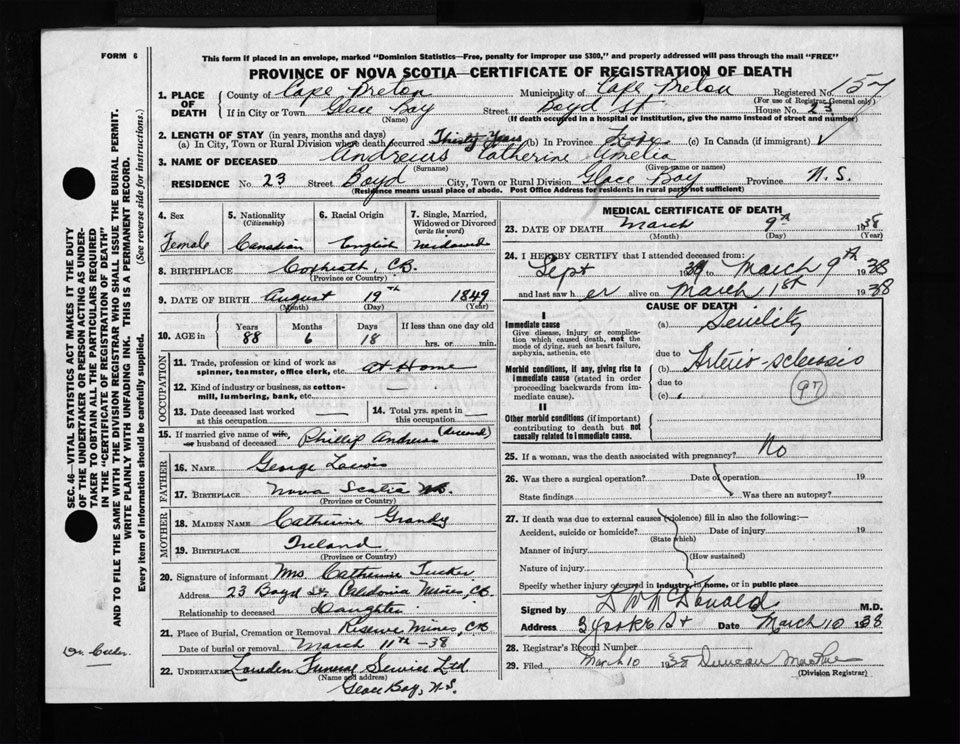 FORM 6
This form if placed in an envelope, marked "Dominion Statistics—Free, penalty for improper use $300," and properly addressed will pass through the mail "FREE"
PROVINCE OF NOVA SCOTIA—CERTIFICATE OF REGISTRATION OF DEATH
1. PLACE OF DEATH County of Cape Breton Municipality of Cape Breton Registered No. 157
(For use of Registrar General only)
If in City or Town Glace Bay Street Boyd St House No. 23
(Name) (If death occurred in a hospital or institution, give the name instead of street and number)
2. LENGTH OF STAY (in years, months and days)
(a) In City, Town or Rural Division where death occurred Thirty Years (b) In Province (c) In Canada (if immigrant) ✓
3. NAME OF DECEASED Andrews Catherine Amelia
(Surname) (Given name or names)
RESIDENCE No. 23 Street Boyd City, Town or Rural Division Glace Bay Province N.S.
(Residence means usual place of abode. Post Office Address for residents in rural parts not sufficient)
4. Sex Female
5. Nationality (Citizenship) Canadian
6. Racial Origin English
7. Single, Married, Widowed or Divorced (write the word) Widowed
8. BIRTHPLACE Coxheath, C.B.
(Province or Country)
9. DATE OF BIRTH August 19th 1849
(Month) (Day) (Year)
10. AGE in Years 88 Months 6 Days 18 If less than one day old hrs. or min.
OCCUPATION
11. Trade, profession or kind of work as spinner, teamster, office clerk, etc. At Home
12. Kind of industry or business, as cotton-mill, lumbering, bank, etc.
13. Date deceased last worked at this occupation
14. Total yrs. spent in this occupation
15. If married give name of wife, or husband of deceased Phillip Andrews (deceased)
FATHER
16. NAME George Lewis
17. BIRTHPLACE Nova Scotia
(Province or Country)
MOTHER
18. MAIDEN NAME Catherine Grandy
19. BIRTHPLACE Ireland
(Province or Country)
20. Signature of informant Mrs Catherine Tucker
Address 23 Boyd St. Caledonia Mines, C.B.
Relationship to deceased Daughter
21. Place of Burial, Cremation or Removal Reserve Mines, CB
Date of burial or removal March 11th -38
22. UNDERTAKER Funeral Service Ltd
(Name and address)
Glace Bay, N.S.
MEDICAL CERTIFICATE OF DEATH
23. DATE OF DEATH March 9th 1938
(Month) (Day) (Year)
24. I HEREBY CERTIFY that I attended deceased from:
Sept 19 to March 9th 1938
and last saw her alive on March 1st 1938
CAUSE OF DEATH
I
Immediate cause
Give disease, injury or complication which caused death, not the mode of dying, such as heart failure, asphyxia, asthenia, etc
(a) Senility
due to
Morbid conditions, if any, giving rise to immediate cause (stated in order proceeding backwards from immediate cause).
(b) Arterio-sclerosis
due to
(c)
97
II
Other morbid conditions (if important) contributing to death but not causally related to immediate cause.
25. If a woman, was the death associated with pregnancy? No
26. Was there a surgical operation? Date of operation 19
State findings Was there an autopsy?
27. If death was due to external causes (violence) fill in also the following:—
Accident, suicide or homicide? Date of injury 19
(State which)
Manner of injury
(How sustained)
Nature of injury
Specify whether injury occurred in industry, in home, or in public place
Signed by McDonald M.D.
Address St Date March 10 1938
28. Registrar's Record Number
29. Filed March 10 1938 Duncan MacRae
(Division Registrar)
SEC. 46—VITAL STATISTICS ACT MAKES IT THE DUTY
OF THE UNDERTAKER OR PERSON ACTING AS UNDERTAKER TO OBTAIN ALL THE PARTICULARS REQUIRED
IN THE "CERTIFICATE OF REGISTRATION OF DEATH"
AND TO FILE THE SAME WITH THE DIVISION REGISTRAR WHO SHALL ISSUE THE BURIAL PERMIT.
WRITE PLAINLY WITH UNFADING INK. THIS IS A PERMANENT RECORD.
Every item of information should be carefully supplied. (See reverse side for instructions.)